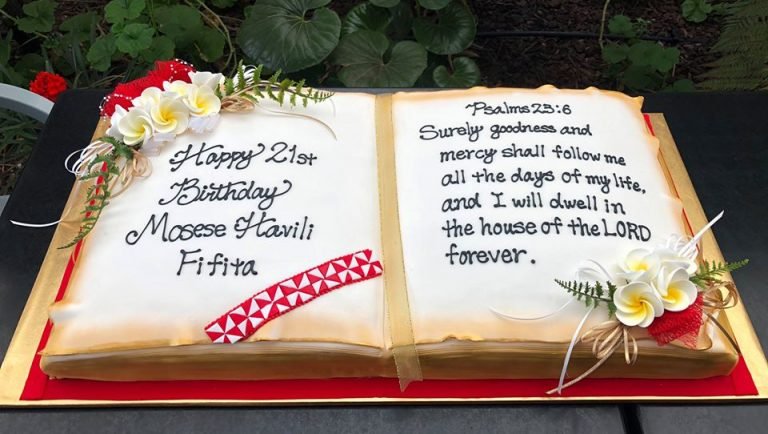 Happy 21st
Birthday
Mosese Havili
Fifita
Psalms 23:6
Surely goodness and
mercy shall follow me
all the days of my life,
and I will dwell in
the house of the LORD
forever.